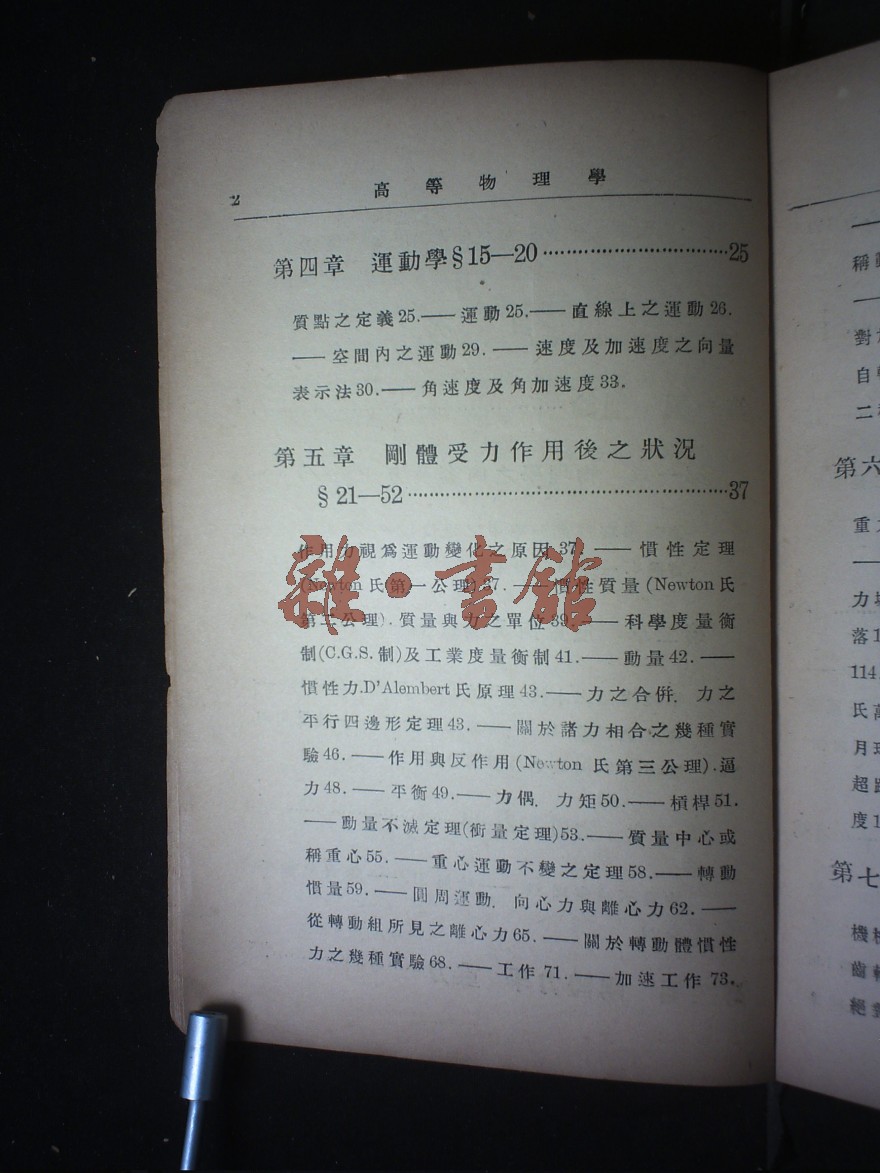 2 高等物理學
第四章 運動學§15—20……………………………25
質點之定義25.——運動25.——直線上之運動26.
——空間內之運動29.——速度及加速度之向量
表示法30.——角速度及角加速度33.
第五章 剛體受力作用後之狀況
§21—52……………………………………………………37
作用力視爲運動變化之原因37.——慣性定理
(Newton氏第一公理)37.——慣性質量(Newton氏
第二公理).質量與力之單位39.——科學度量衡
制(C.G.S.制)及工業度量衡制41.——動量42.——
慣性力.D'Alembert氏原理43.——力之合併. 力之
平行四邊形定理43.——關於諸力相合之幾種實
驗46.——作用與反作用(Newton氏第三公理).逼
力48.——平衡49.——力偶. 力矩50.——槓桿51.
——動量不滅定理(衝量定理)53.——質量中心或
稱重心55.——重心運動不變之定理58.——轉動
慣量59.——圓周運動. 向心力與離心力62.——
從轉動組所見之離心力65.——關於轉動體慣性
力之幾種實驗68.——工作71.——加速工作73.
雜·書館
稱
對
自
二
第六
重
力
落1
114.
氏
月
超
度1
第七
機
齒
絕